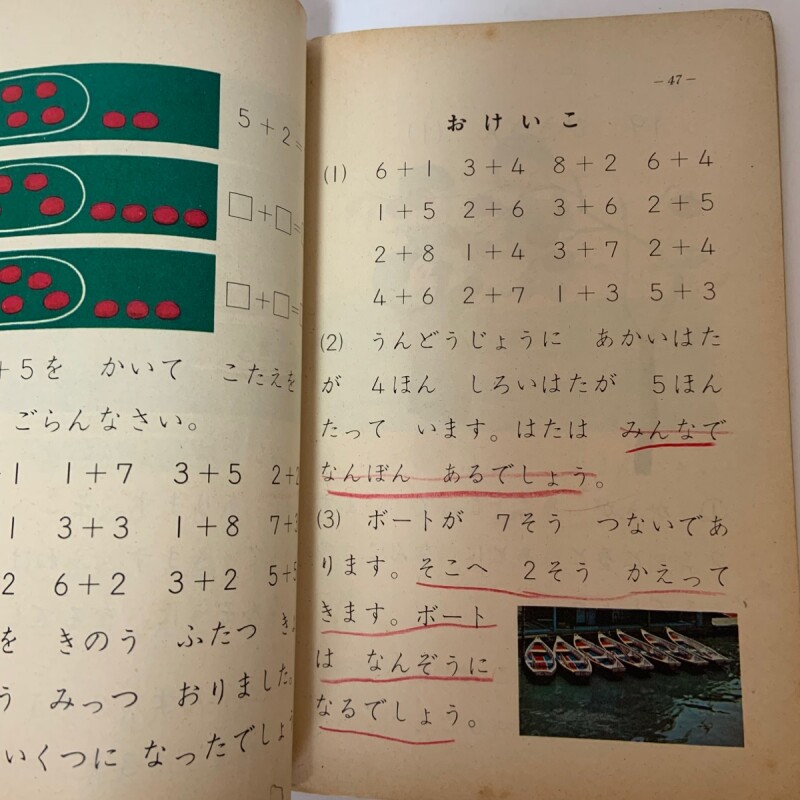 5+2=
□+□=
□+□=
+5を かいて こたえを
ごらんなさい。
+1 1+7 3+5 2+2
1 3+3 1+8 7+3
2 6+2 3+2 5+5
を きのう ふたつ き
う みっつ おりました。
いくつに なったでしょ
-47-
おけいこ
(1) 6+1 3+4 8+2 6+4
1+5 2+6 3+6 2+5
2+8 1+4 3+7 2+4
4+6 2+7 1+3 5+3
(2) うんどうじょうに あかいはた
が 4ほん しろいはたが 5ほん
たって います。はたは みんなで
なんぼん あるでしょう。
(3) ボートが 7そう つないであ
ります。そこへ 2そう かえって
きます。ボート
は なんぞうに
なるでしょう。